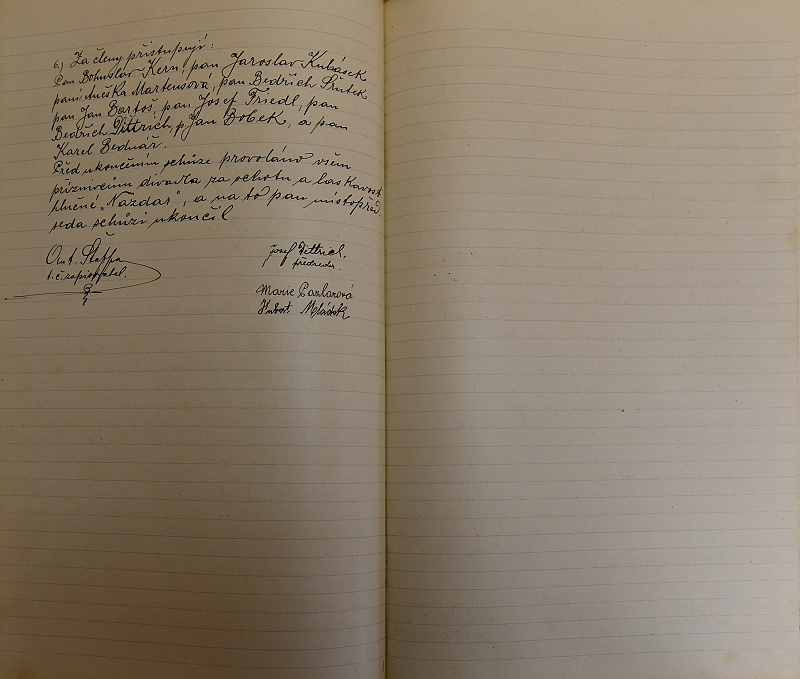 6.) Za členy přistupují:
Pan Bohuslav Kern, pan Jaroslav Kubásek
paní Anežka Martensová, pan Bedřich Šrůtek
pan Jan Bartoš, pan Josef Friedl, pan
Bedřich Dittrich, p. Jan Bobek, a pan
Karel Bednář.
Před ukončením schůze provoláno všem
příznivcům divadla za ochotu a laskavost
plnéné „Nazdar", a na to pan místopřed
seda schůzi ukončil
Ant. Štaffa
t. č. zapisovatel.
Josef Dittrich.
předseda.
Marie Pazlarová
Hubert Mládek